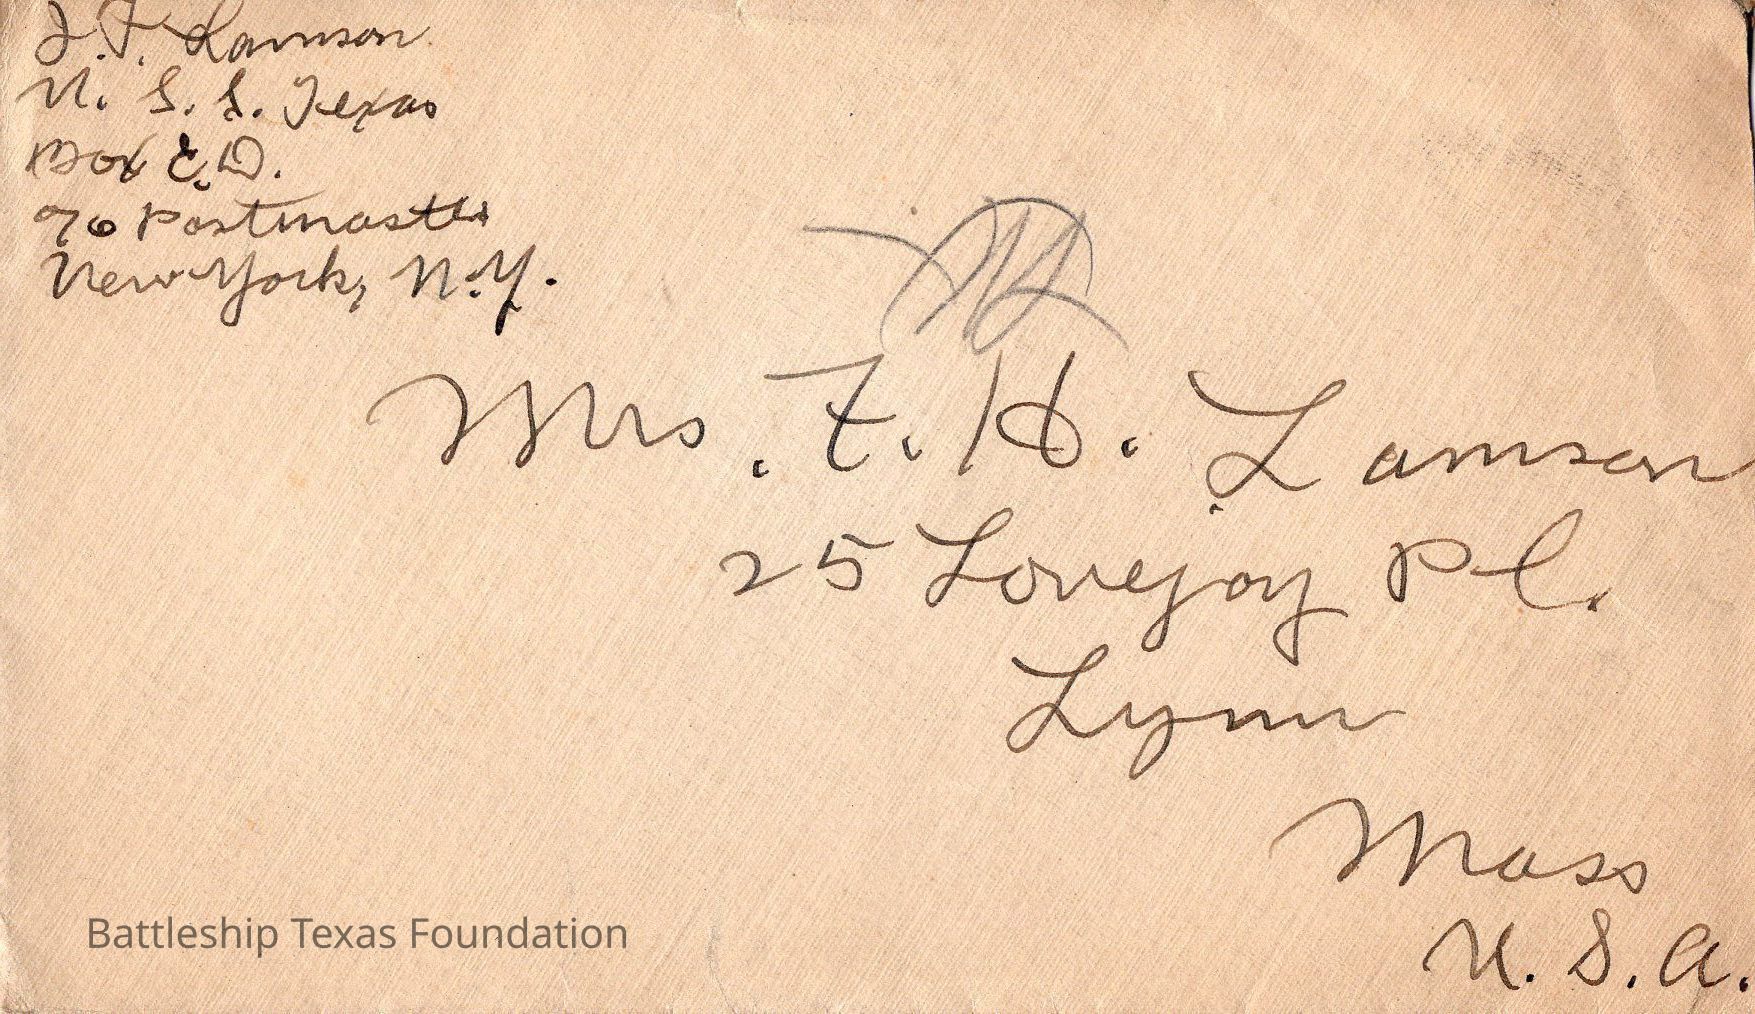 J.F. Lamson
U. S. S. Texas
Box E.D.
c/o Postmaster
New York, N.Y.
Mrs. F. H. Lamson
25 Lovejoy Pl.
Lynn
Mass
U. S. A.
Battleship Texas Foundation